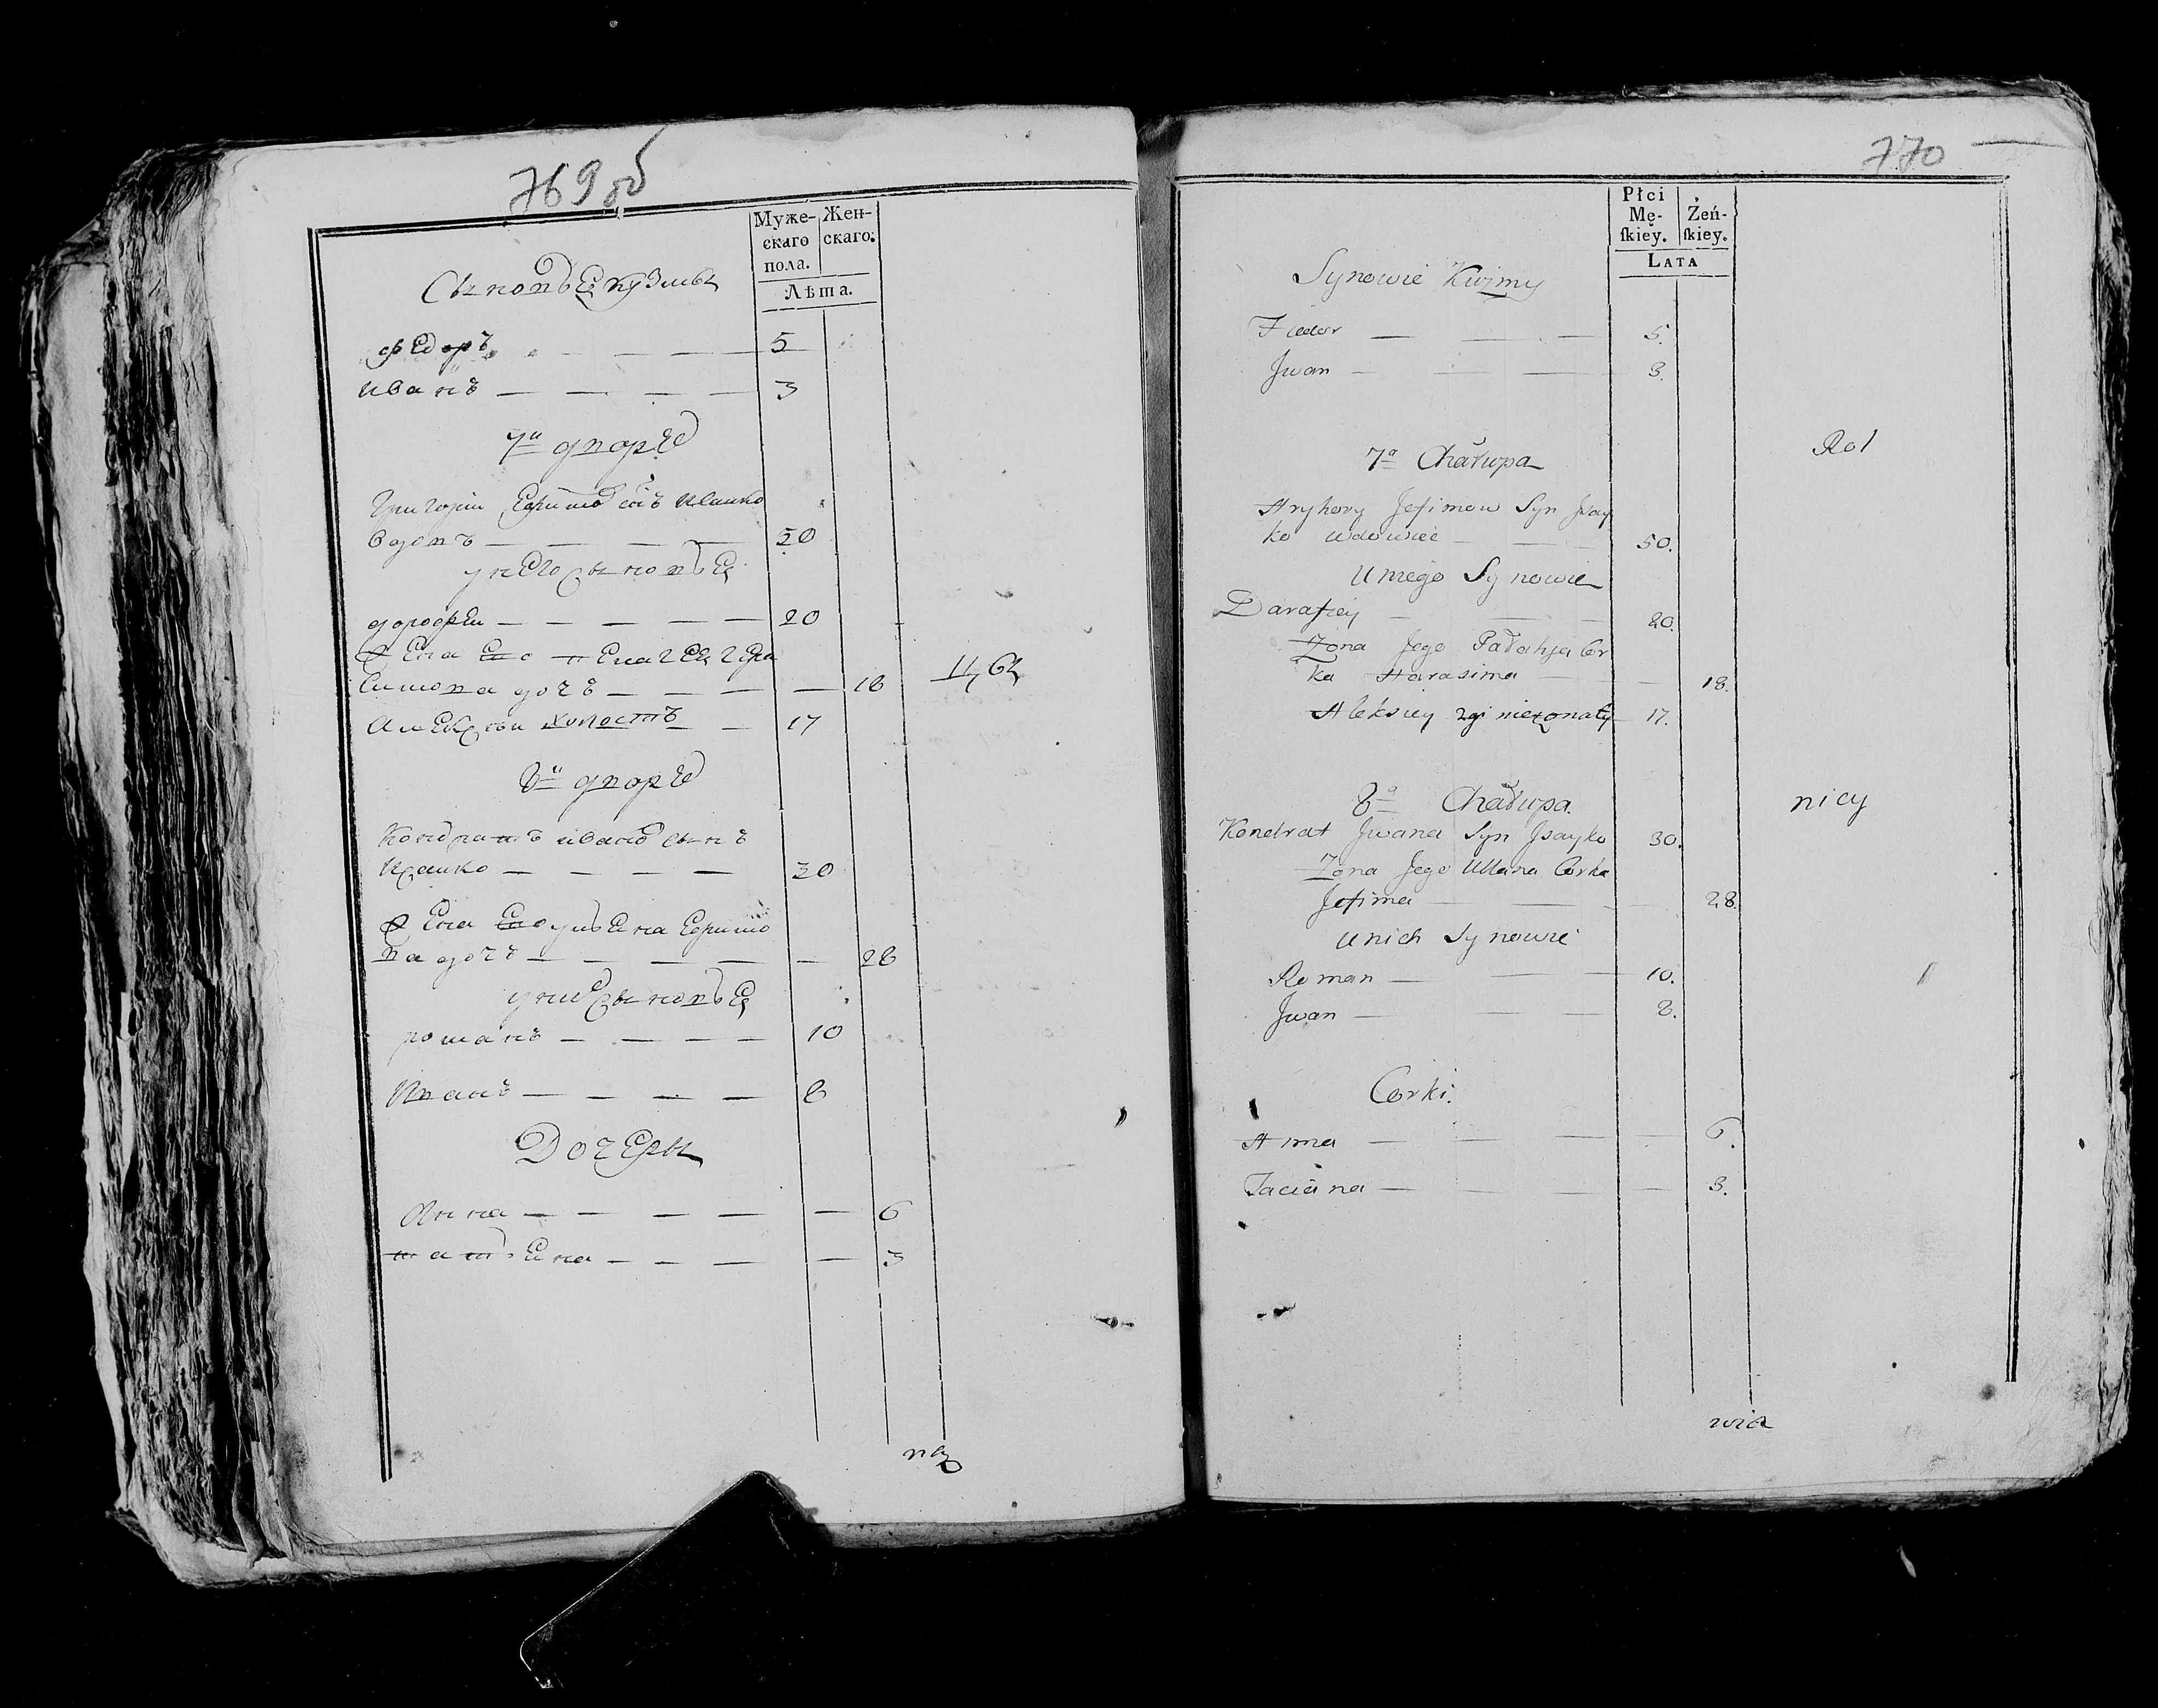 769 об
Муже-
скаго
пола.
Жен-
скаго.
Лѣта.
Сыновья Кузмы
Федоръ 5
Иванъ 3
7й дворъ
Григорій Ефимо сынъ Исаико
вдовъ 50
у него сыновья
дорофеи 20
жена его
дочъ 18
Алексѣи холостъ 17
8й дворъ
Кондратъ ивано сынъ
Исаико 30
жена его ульяна Ефимо
ва дочъ 28
у них сыновья
романъ 10
Иванъ 8
Дочеры
Анна 6
татьяна 3
770
Płci
Mę-
ſkiey.
Żeń-
ſkiey.
LATA
Synowie Kuzmy
Fiedor 5.
Jwan 3.
7a Chałupa
Rol
Hryhory Jefimow Syn Jsay
ko wdowiec 50.
U niego Synowie
Darafiey 20.
Zona Jego Pałahja Cor
ka Harasima 18.
Aleksiey 2gi nieżonaty 17.
8a Chałupa.
nicy
Kondrat Jwana Syn Jsayko 30.
Zona Jego Ullana Corka
Jefima 28.
U nich Synowie
Roman 10.
Jwan 8.
Corki.
Anna 6.
Taciana 3.